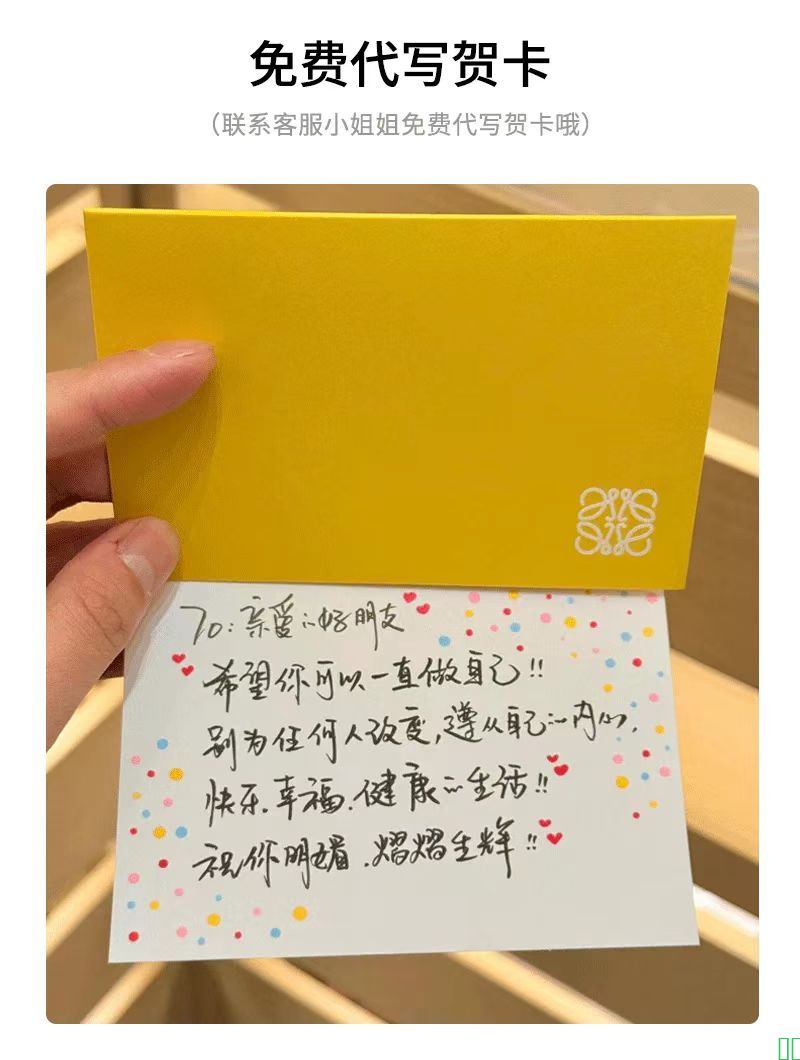 免费代写贺卡
（联系客服小姐姐免费代写贺卡哦）
To：亲爱的好朋友
希望你可以一直做自己!!
别为任何人改变，遵从自己的内心，
快乐.幸福.健康的生活!!
祝你明媚.熠熠生辉!!